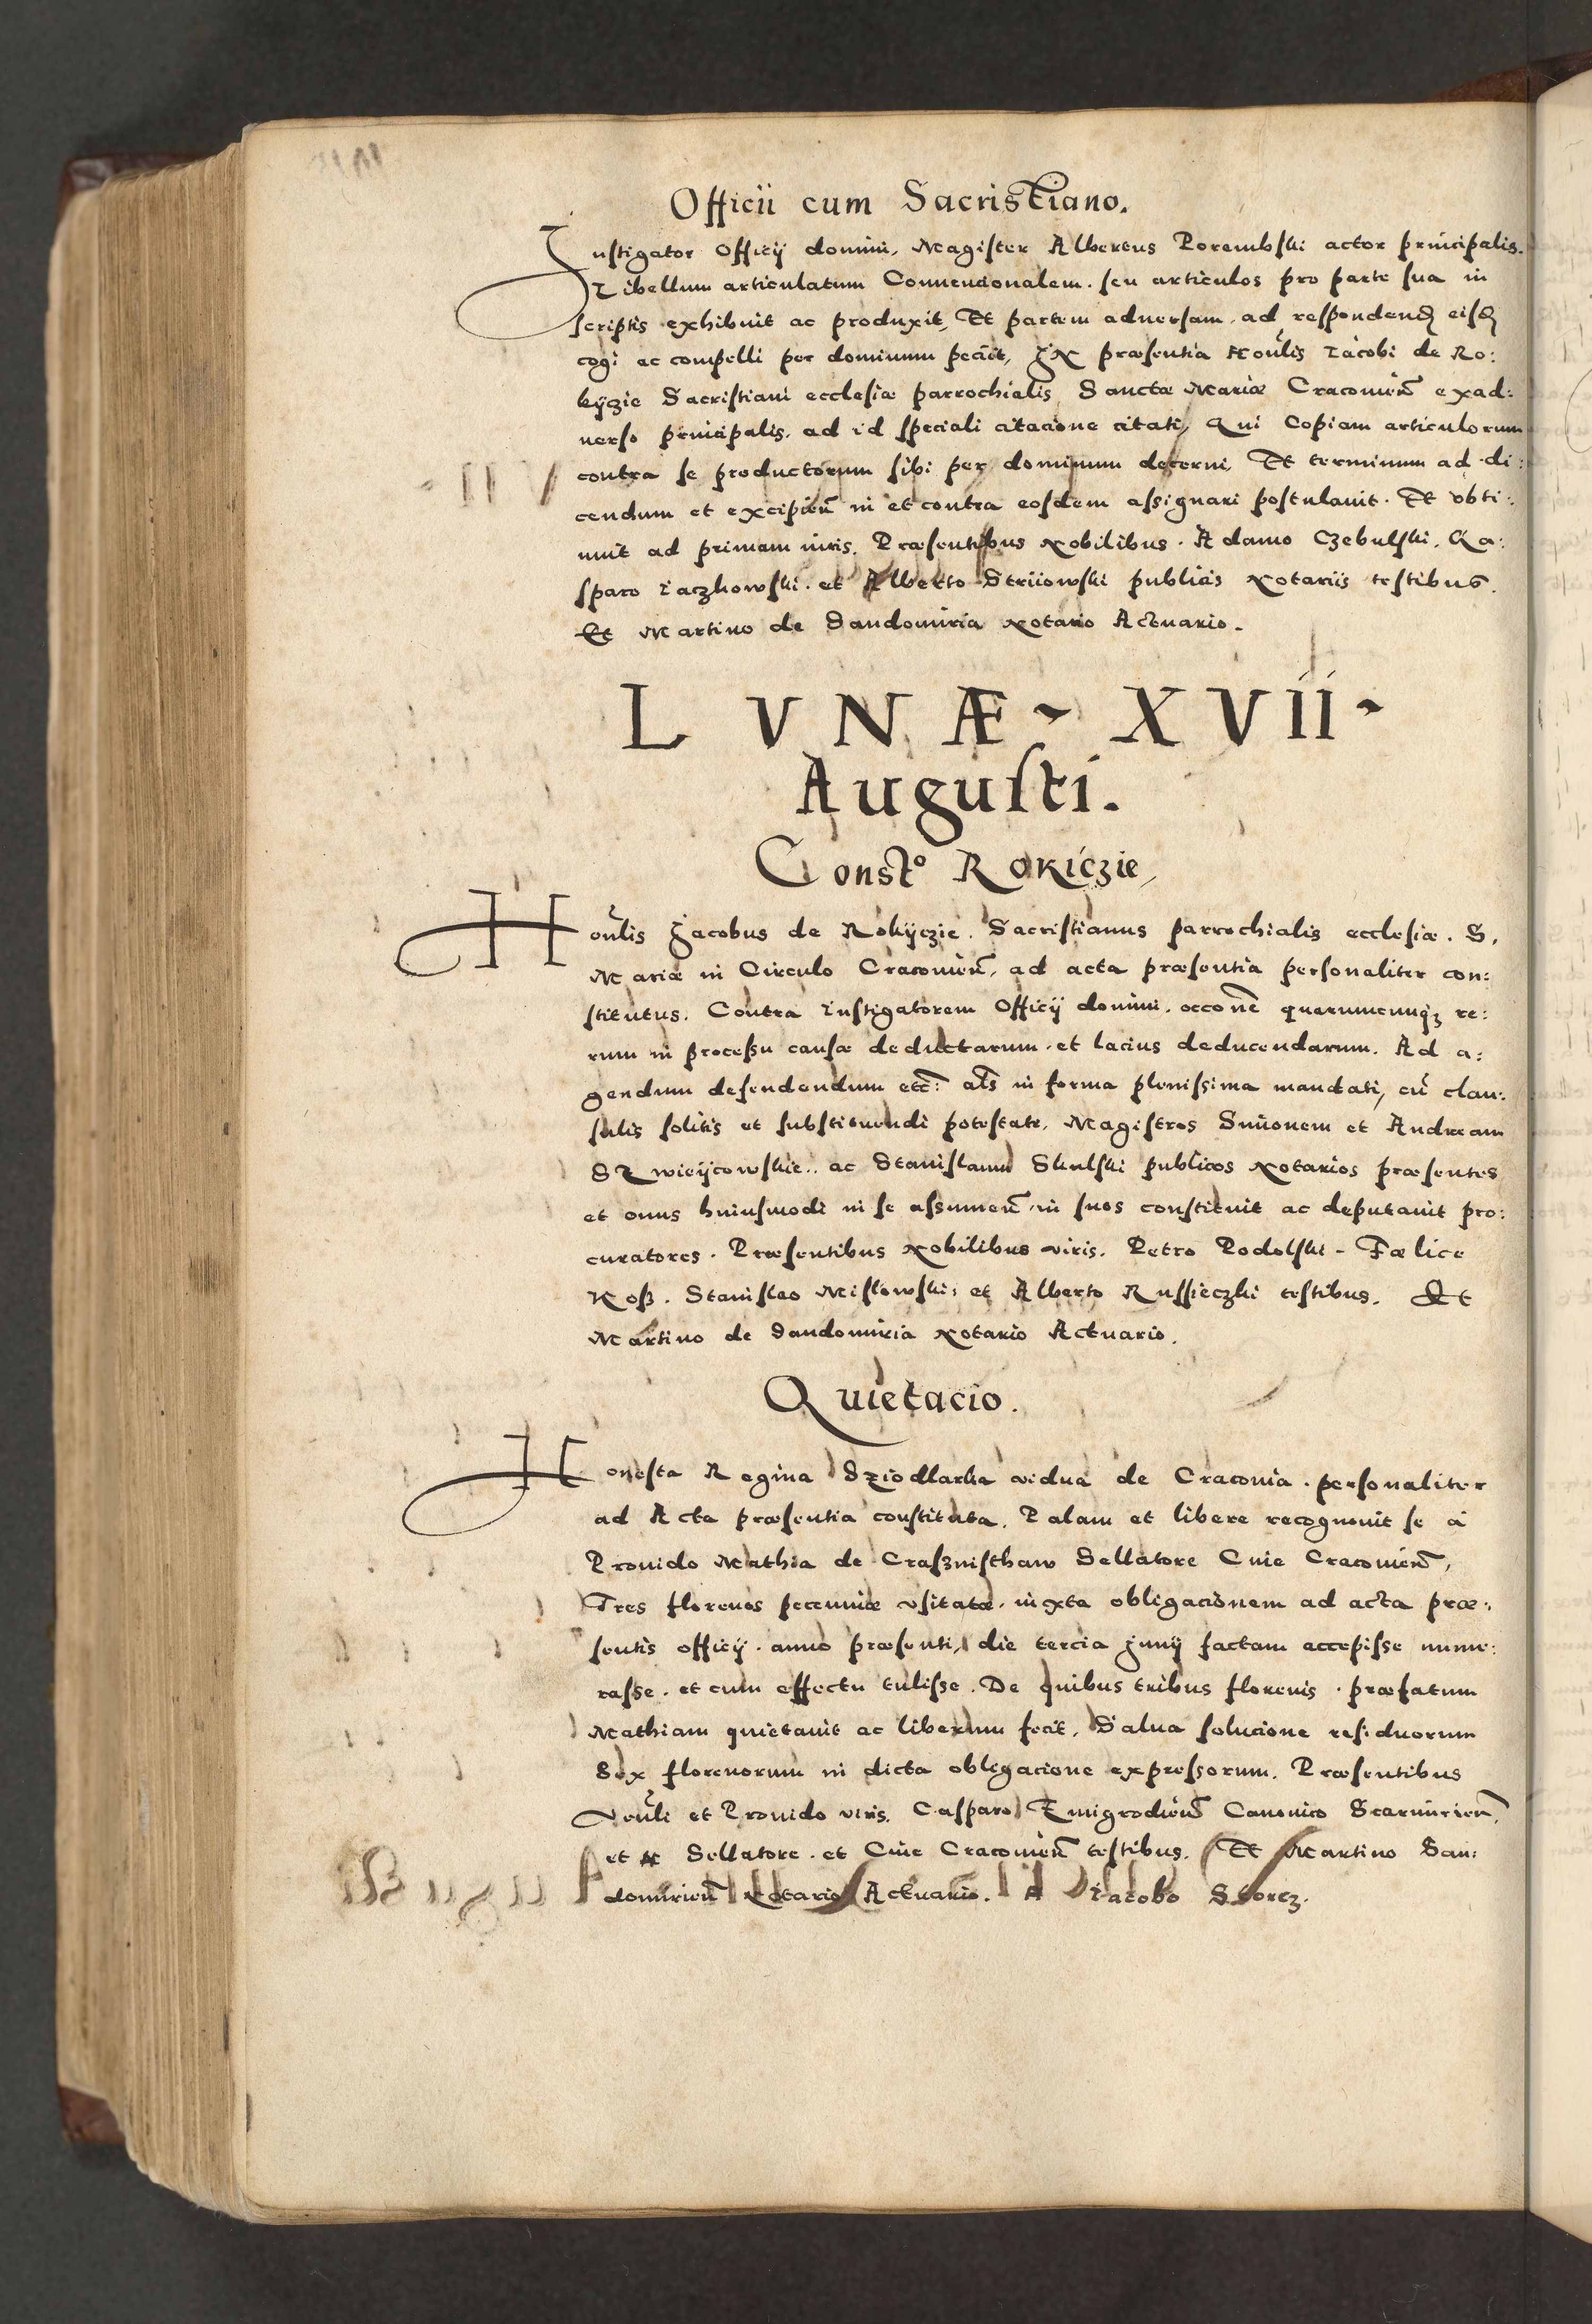 Officii cum Sacristiano.
Instigator Officij domini, Magister Albertus Porembski actor principalis.
Libellum articulatum Conuencionalem. seu articulos pro parte sua in
scriptis exhibuit ac produxit, Et partem aduersam. ad respondend eisd
cogi ac compelli per dominum peciit, In præsentia Honlis Iacobi de Ro:
kyczie Sacristiani ecclesiæ parrochialis Sanctæ Mariæ Cracouien exad:
uerso principalis. ad id speciali citacione citati, Qui Copiam articulorum
contra se productorum sibi per dominum decerni, Et terminum ad di:
cendum et excipien in et contra eosdem assignari postulauit. Et obti:
nuit ad primam iuris. Præsentibus Nobilibus. Adamo Czebulski, Ga:
sparo Iaczkowski. et Alberto Striiowski publicis Notariis testibus.
Et Martino de Sandomiria Notario Actuario.
LVNÆ XVII
Augusti.
Const° Rokiczie,
Honlis Jacobus de Rokyczie. Sacristianus parrochialis ecclesiæ. S.
Mariæ in Circulo Cracouien, ad acta præsentia personaliter con:
stitutus. Contra Instigatorem Officij domini. occone quarumcunqz re:
rum in processu causæ deductarum. et lacius deducendarum. Ad a:
gendum defendendum etc: als in forma plenissima mandati, cu clau:
sulis solitis et substituendi potestate, Magistros Simonem et Andream
ac Stanislaum Skulski publicos Notarios præsentes
et onus huiusmodi in se assumen in suos constituit ac deputauit pro:
curatores. Præsentibus Nobilibus viris. Petro Podolski. Fælice
Koß. Stanislao Mislowski, et Alberto Russieczki testibus. Et
Martino de Sandomiria Notario Actuario.
Quietacio.
Honesta Regina vidua de Cracouia. personaliter
ad Acta præsentia constituta. Palam et libere recognouit se à
Prouido Mathia de Crasznisthaw Sellatore Ciuie Cracouien,
Tres florenos pecuniæ vsitatæ. iuxta obligacionem ad acta præ:
sentis officij. anno præsenti, die tercia Junij factam accepisse nume:
rasse. et cum effectu tulisse. De quibus tribus florenis. præfatum
Mathiam quietauit ac liberum fecit, Salua solucione residuorum
Sex florenorum in dicta obligacione expressorum. Præsentibus
Venli et Prouido viris. Casparo Zmigrodien Canonico Scarmirien,
et Sellatore. et Ciue Cracouien testibus. Et Martino San:
domirien Notario Actuario. A Iacobo